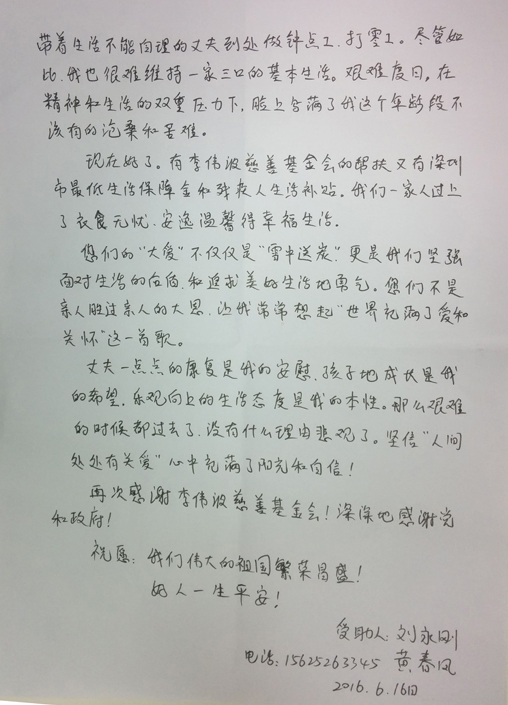 带着生活不能自理的丈夫到处做钟点工、打零工。尽管如
此,我也很难维持一家三口的基本生活。艰难度日。在
精神和生活的双重压力下,脸上写满了我这个年龄段不
该有的沧桑和苦难。
现在好了。有李伟波慈善基金会的帮扶又有深圳
市最低生活保障金和残疾人生活补贴。我们一家人过上
了衣食无忧、安逸温馨得幸福生活。
您们的“大爱”不仅仅是“雪中送炭”更是我们坚强
面对生活的后盾,和追求美好生活地勇气。您们不是
亲人胜过亲人的大恩,让我常常想起“世界充满了爱和
关怀”这一首歌。
丈夫一点点的康复是我的安慰,孩子地成长是我
的希望,乐观向上的生活态度是我的本性。那么艰难
的时候都过去了,没有什么理由悲观了。坚信“人间
处处有关爱”心中充满了阳光和自信!
再次感谢李伟波慈善基金会!深深地感谢党
和政府!
祝愿:我们伟大的祖国繁荣昌盛!
好人一生平安!
受助人:刘永刚
电话:15625263345 黄春凤
2016.6.16日